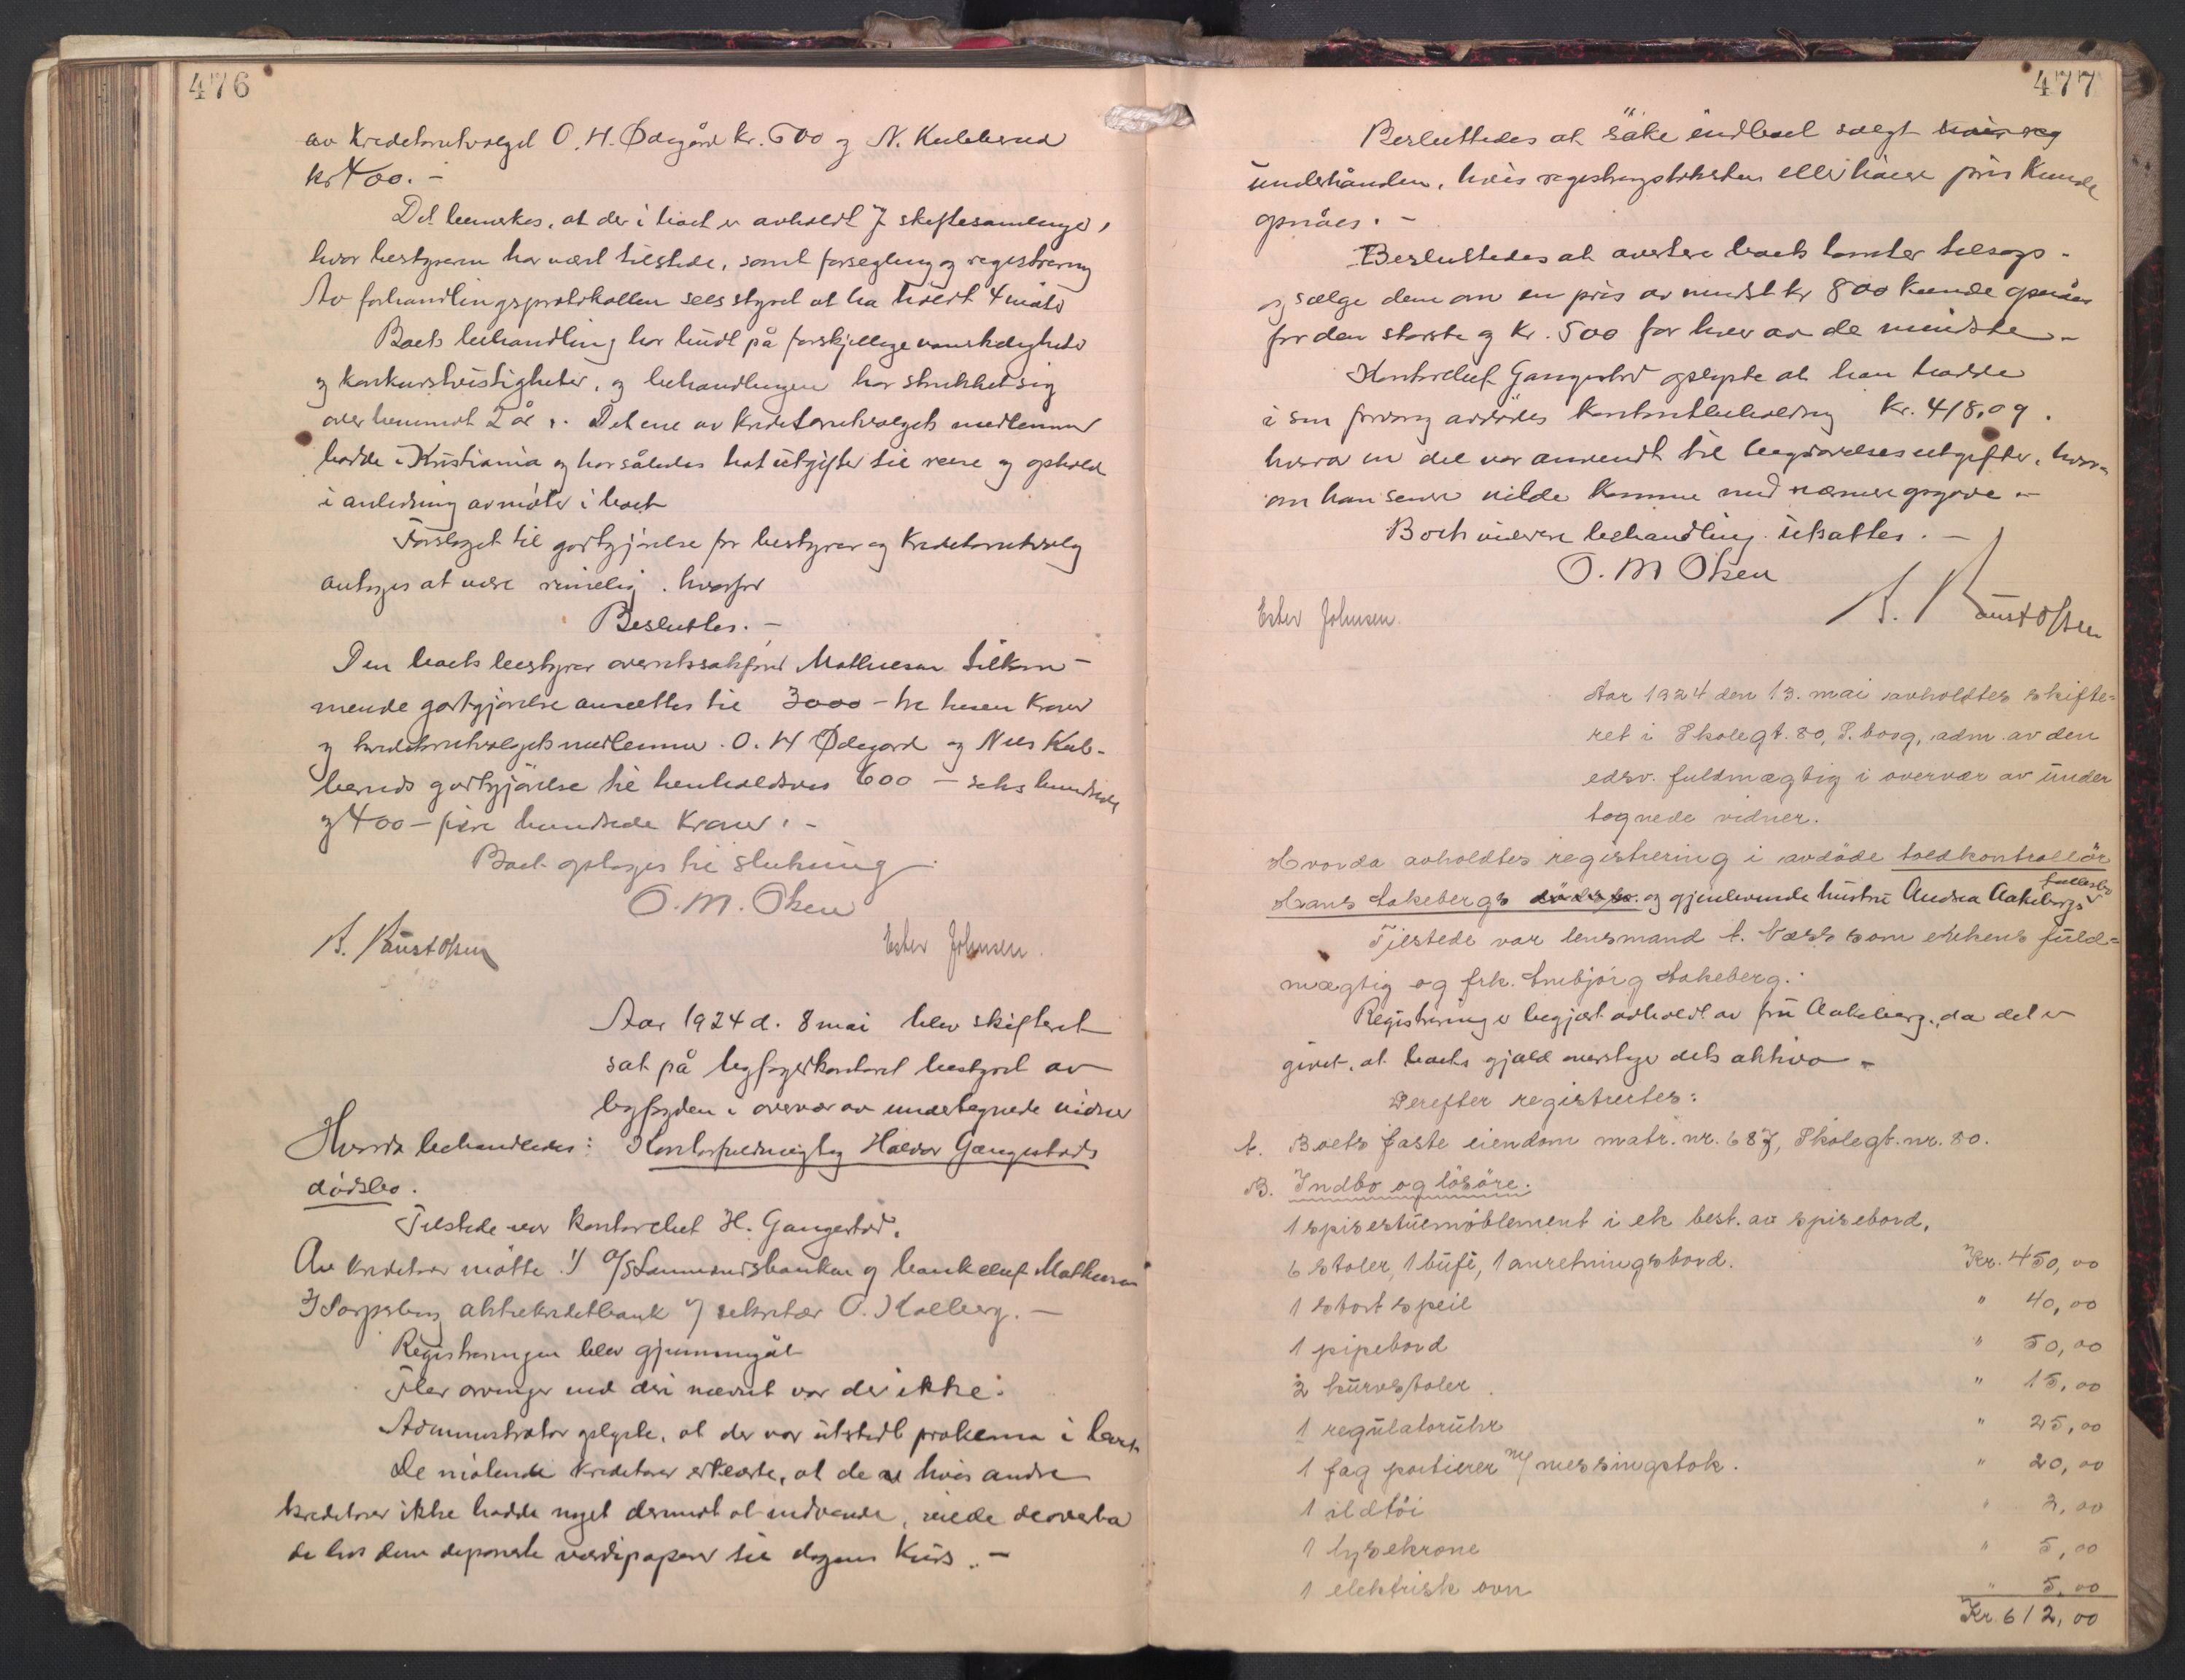 476
av Kreditorutvalget O. H. Ødegård kr. 600 og N. Kulblerud
kr 400. -
Det bemerkes, at der i boet er avholdt 7 skiftesamlinger,
hvor bestyreren har vært tilstede, samt forsegling og registrering
Av forhandlingsprotokollen sees styret at ha holdt 4 møter
Boets behandling har budt på forskjellige vanskeligheter
og konkurstvistigheter, og behandlingen har strukket sig
over henimot 2 år. Det ene av kreditorutvalgets medlemmer
bodde i Kristiania og har således hat utgifter til reise og ophold
i anledning av møter i boet
Forslaget til godtgjørelse for bestyrer og Kreditorutvalg
antages at være rimelig. hvorfor
Besluttes. -
Den boets bestyrer overretssakfører Mathiesen tilkom-
mende godtgjørelse ansættes til 3000 - tre tusen Kroner
og kreditorutvalgets medlemmer. O. H Ødegard og Nils Kul-
bleruds godtgjörelse til henholdsvis 600 - seks hundrede
og 400 - fire hundrede Kroner. -
Boet optages til slutning.
O. M. Olsen
A. Knustolsen
Ester Johnsen.
Aar 1924 d. 8 mai blev skifteret
sat på byfogedkontoret bestyret av
byfogden i overvær av undertegnede vidner
Hvorda behandledes: Kontorfuldmægtig Halvor Gangestads
dödsbo.
Tilstede var Kontorchef H. Gangestad.
Av kreditorer møtte 1) A/S Lanmandsbanken og bankchef Mathiesen
2) Sarpsborg aktiekreditbank v/ sekretær O. Kolberg. -
Registreringen blev gjennemgåt
Fler arvinger end deri nævnt var der ikke.
Administrator oplyste, at der var utstedt proklama i boet
De møtende kreditorer erklærte, at de hvis andre
kreditorer ikke hadde noget derimot at indvende, vilde de overta
de hos dem deponerte værdipapirer til dagens Kurs. -
477
Besluttedes at søke indboet solgt
underhånden, hvis registreringstaksten eller høiere pris Kunde
opnåes. -
Besluttedes at avertere boets tomter tilsags -
og sælge dem om en pris av mindst kr 800 kunde opnåes
for den største og Kr. 500 for hver av de mindste -
Kontorchef Gangestad oplyste at han hadde
i sin forvaring avdødes kontantbeholdning kr. 418,09.
hvorav en del var anvendt til begravelsesutgifter, hvor-
om han senere vilde komme med nærmere opgave -
Boets videre behandling utsattes. -
O. M Olsen
A. Knustolsen
Ester Johnsen.
Aar 1924 den 13. mai avholdtes skifte=
ret i Skolegt. 80, S.borg, adm. av den
edsv. fuldmægtig i overvær av under
tegnede vidner.
Hvorda avholdtes registrering i avdöde toldkontrollör
fællesbo
Hans Aakebergs dödsbo og gjenlevende hustru Andrea Aakebergs
Tilstede var lensmand A. Næss som enkens fuld=
mægtig og frk. Aakeberg.
Registrering er begjært avholdt av fru Aakeberg, da det er
givet, at boets gjæld overstiger dets aktiva -
Derefter registrertes:
A. Boets faste eiendom matr. nr. 687, Skolegt. nr. 80.
B. Indbo og lösöre.
1 spisestuemöblement i ek best. av spisebord,
6 stoler, 1 büfe, 1 anretningsbord. Kr. 450,00
1 stort speil " 40,00
1 pipebord " 50,00
2 kurvstoler. " 15,00
1 regulatoruhr " 25,00
1 fag portierer m/ messingstok. " 20,00
1 ildtöi " 2,00
1 lysekrone " 5,00
1 elektrisk ovn " 5,00
Kr. 612,00